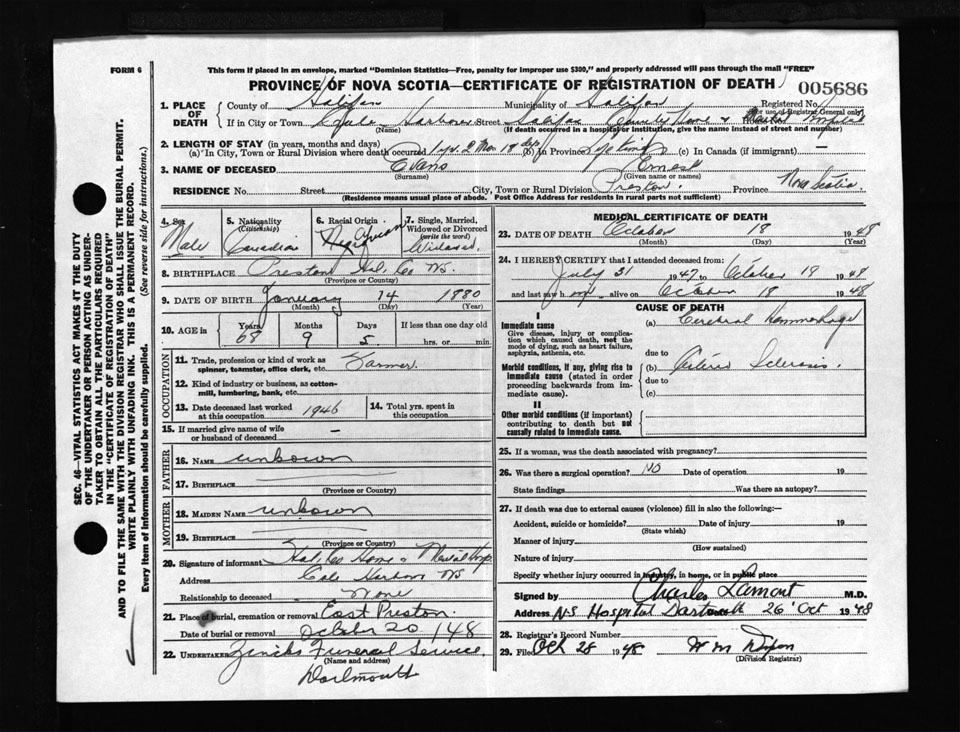 FORM 6
This form if placed in an envelope, marked "Dominion Statistics—Free, penalty for improper use $300," and properly addressed will pass through the mail "FREE"
PROVINCE OF NOVA SCOTIA—CERTIFICATE OF REGISTRATION OF DEATH
005686
1. PLACE OF DEATH
County of Halifax Municipality of Halifax Registered No.
(For use of Registrar General only)
If in City or Town Cole Harbour Street Halifax County Home & Mental Hospital
(Name) (If death occurred in a hospital or institution, give the name instead of street and number)
2. LENGTH OF STAY (in years, months and days)
(a) In City, Town or Rural Division where death occurred 1 yr. 2 Mon 18 days (b) In Province Lifetime (c) In Canada (if immigrant) —
3. NAME OF DECEASED Evans Ernest
(Surname) (Given name or names)
RESIDENCE No. Street City, Town or Rural Division Preston. Province Nova Scotia
(Residence means usual place of abode. Post Office Address for residents in rural parts not sufficient)
4. Sex Male
5. Nationality (Citizenship) Canadian
6. Racial Origin
7. Single, Married, Widowed or Divorced (write the word) Widowed
8. BIRTHPLACE Preston Hfx. Co NS.
(Province or Country)
9. DATE OF BIRTH January 14 1880
(Month) (Day) (Year)
10. AGE in Years 68 Months 9 Days 5 If less than one day old hrs. or min.
OCCUPATION
11. Trade, profession or kind of work as spinner, teamster, office clerk, etc. Farmer
12. Kind of industry or business, as cotton-mill, lumbering, bank, etc.
13. Date deceased last worked at this occupation 1946
14. Total yrs. spent in this occupation
15. If married give name of wife or husband of deceased —
FATHER
16. NAME unknown
17. BIRTHPLACE
(Province or Country)
MOTHER
18. MAIDEN NAME unknown
19. BIRTHPLACE
(Province or Country)
20. Signature of informant Hal. Co Home & Mental Hosp
Address Cole Harbour NS
Relationship to deceased None
21. Place of burial, cremation or removal East Preston.
Date of burial or removal October 20, 148
22. UNDERTAKER Zincks Funeral Service,
(Name and address)
Dartmouth
MEDICAL CERTIFICATE OF DEATH
23. DATE OF DEATH October 18 1948
(Month) (Day) (Year)
24. I HEREBY CERTIFY that I attended deceased from:
July 31 1947 to October 18 1948
and last saw him alive on October 18 1948
CAUSE OF DEATH
I
Immediate cause
Give disease, injury or complication which caused death, not the mode of dying, such as heart failure, asphyxia, asthenia, etc.
(a) Cerebral Hemorrhage
due to
Morbid conditions, if any, giving rise to immediate cause (stated in order proceeding backwards from immediate cause).
(b) Arterio Sclerosis.
due to
(c)
II
Other morbid conditions (if important) contributing to death but not causally related to immediate cause.
25. If a woman, was the death associated with pregnancy?
26. Was there a surgical operation? NO Date of operation 19
State findings Was there an autopsy?
27. If death was due to external causes (violence) fill in also the following:—
Accident, suicide or homicide? Date of injury 19
(State which)
Manner of injury
(How sustained)
Nature of injury
Specify whether injury occurred in industry, in home, or in public place
Signed by Charles Lamont M.D.
Address NS Hospital Dartmouth 26 Oct 1948
28. Registrar's Record Number
29. Filed Oct 28 1948 W M Dixon
(Division Registrar)
SEC. 46—VITAL STATISTICS ACT MAKES IT THE DUTY OF THE UNDERTAKER OR PERSON ACTING AS UNDERTAKER TO OBTAIN ALL THE PARTICULARS REQUIRED IN THE "CERTIFICATE OF REGISTRATION OF DEATH" AND TO FILE THE SAME WITH THE DIVISION REGISTRAR WHO SHALL ISSUE THE BURIAL PERMIT.
WRITE PLAINLY WITH UNFADING INK. THIS IS A PERMANENT RECORD.
Every item of information should be carefully supplied. (See reverse side for instructions.)